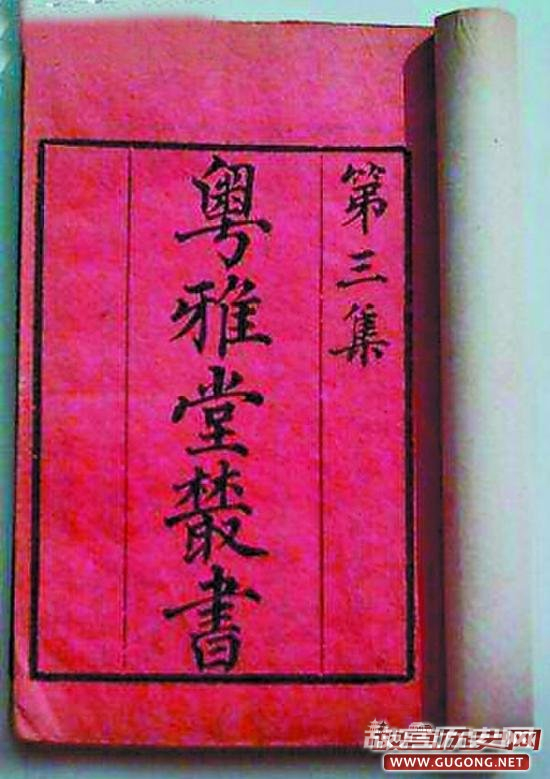 第三集
粵雅堂叢書
故宫历史网
WWW.GUGONG.NET